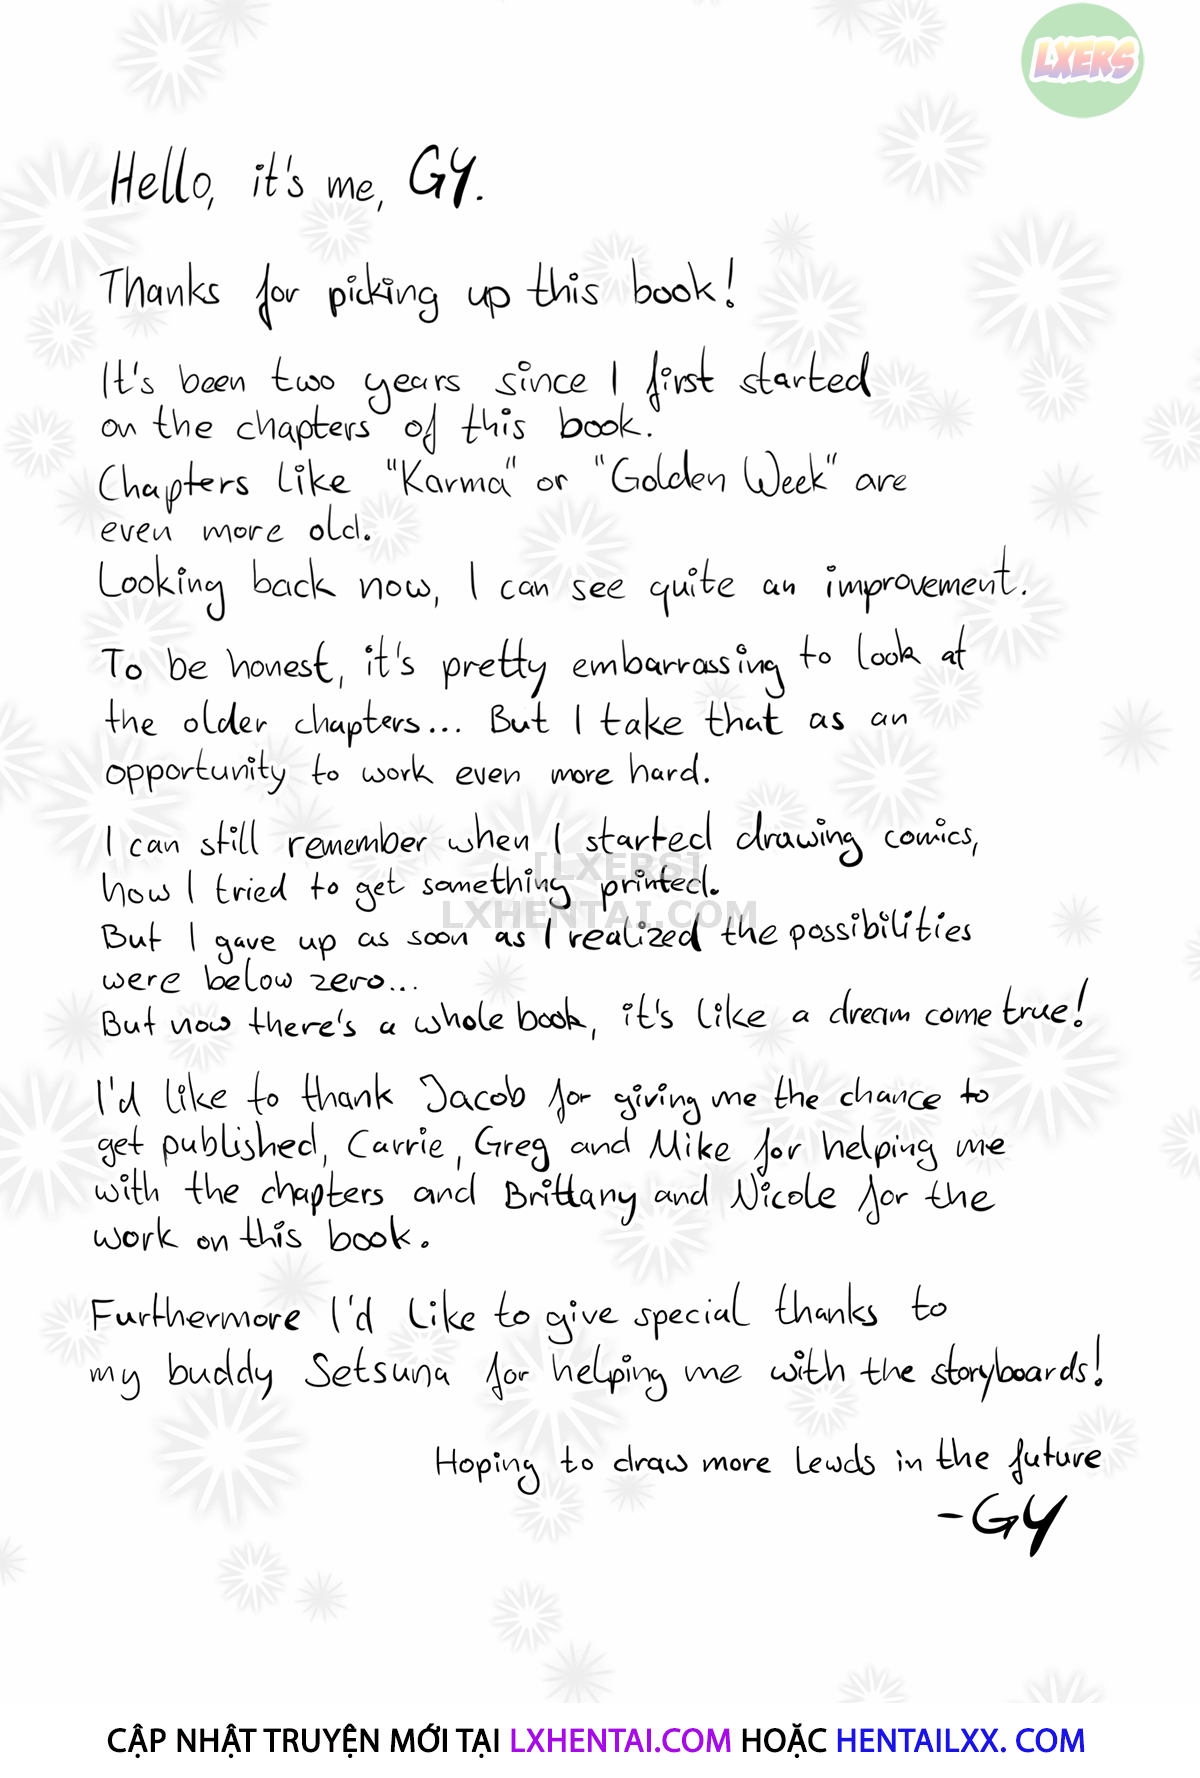 LXERS
Hello, it's me, GY.
Thanks for picking up this book!
It's been two years since I first started
on the chapters of this book.
Chapters like "Karma" or "Golden Week" are
even more old.
Looking back now, I can see quite an improvement.
To be honest, it's pretty embarrassing to look at
the older chapters... But I take that as an
opportunity to work even more hard.
I can still remember when I started drawing comics,
[LXERS]
how I tried to get something printed.
LXHENTAI.COM
But I gave up as soon as I realized the possibilities
were below zero...
But now there's a whole book, it's like a dream come true!
I'd like to thank Jacob for giving me the chance to
get published, Carrie, Greg and Mike for helping me
with the chapters and Brittany and Nicole for the
work on this book.
Furthermore I'd like to give special thanks to
my buddy Setsuna for helping me with the storyboards!
Hoping to draw more lewds in the future
-GY
CẬP NHẬT TRUYỆN MỚI TẠI LXHENTAI.COM HOẶC HENTAILXX. COM